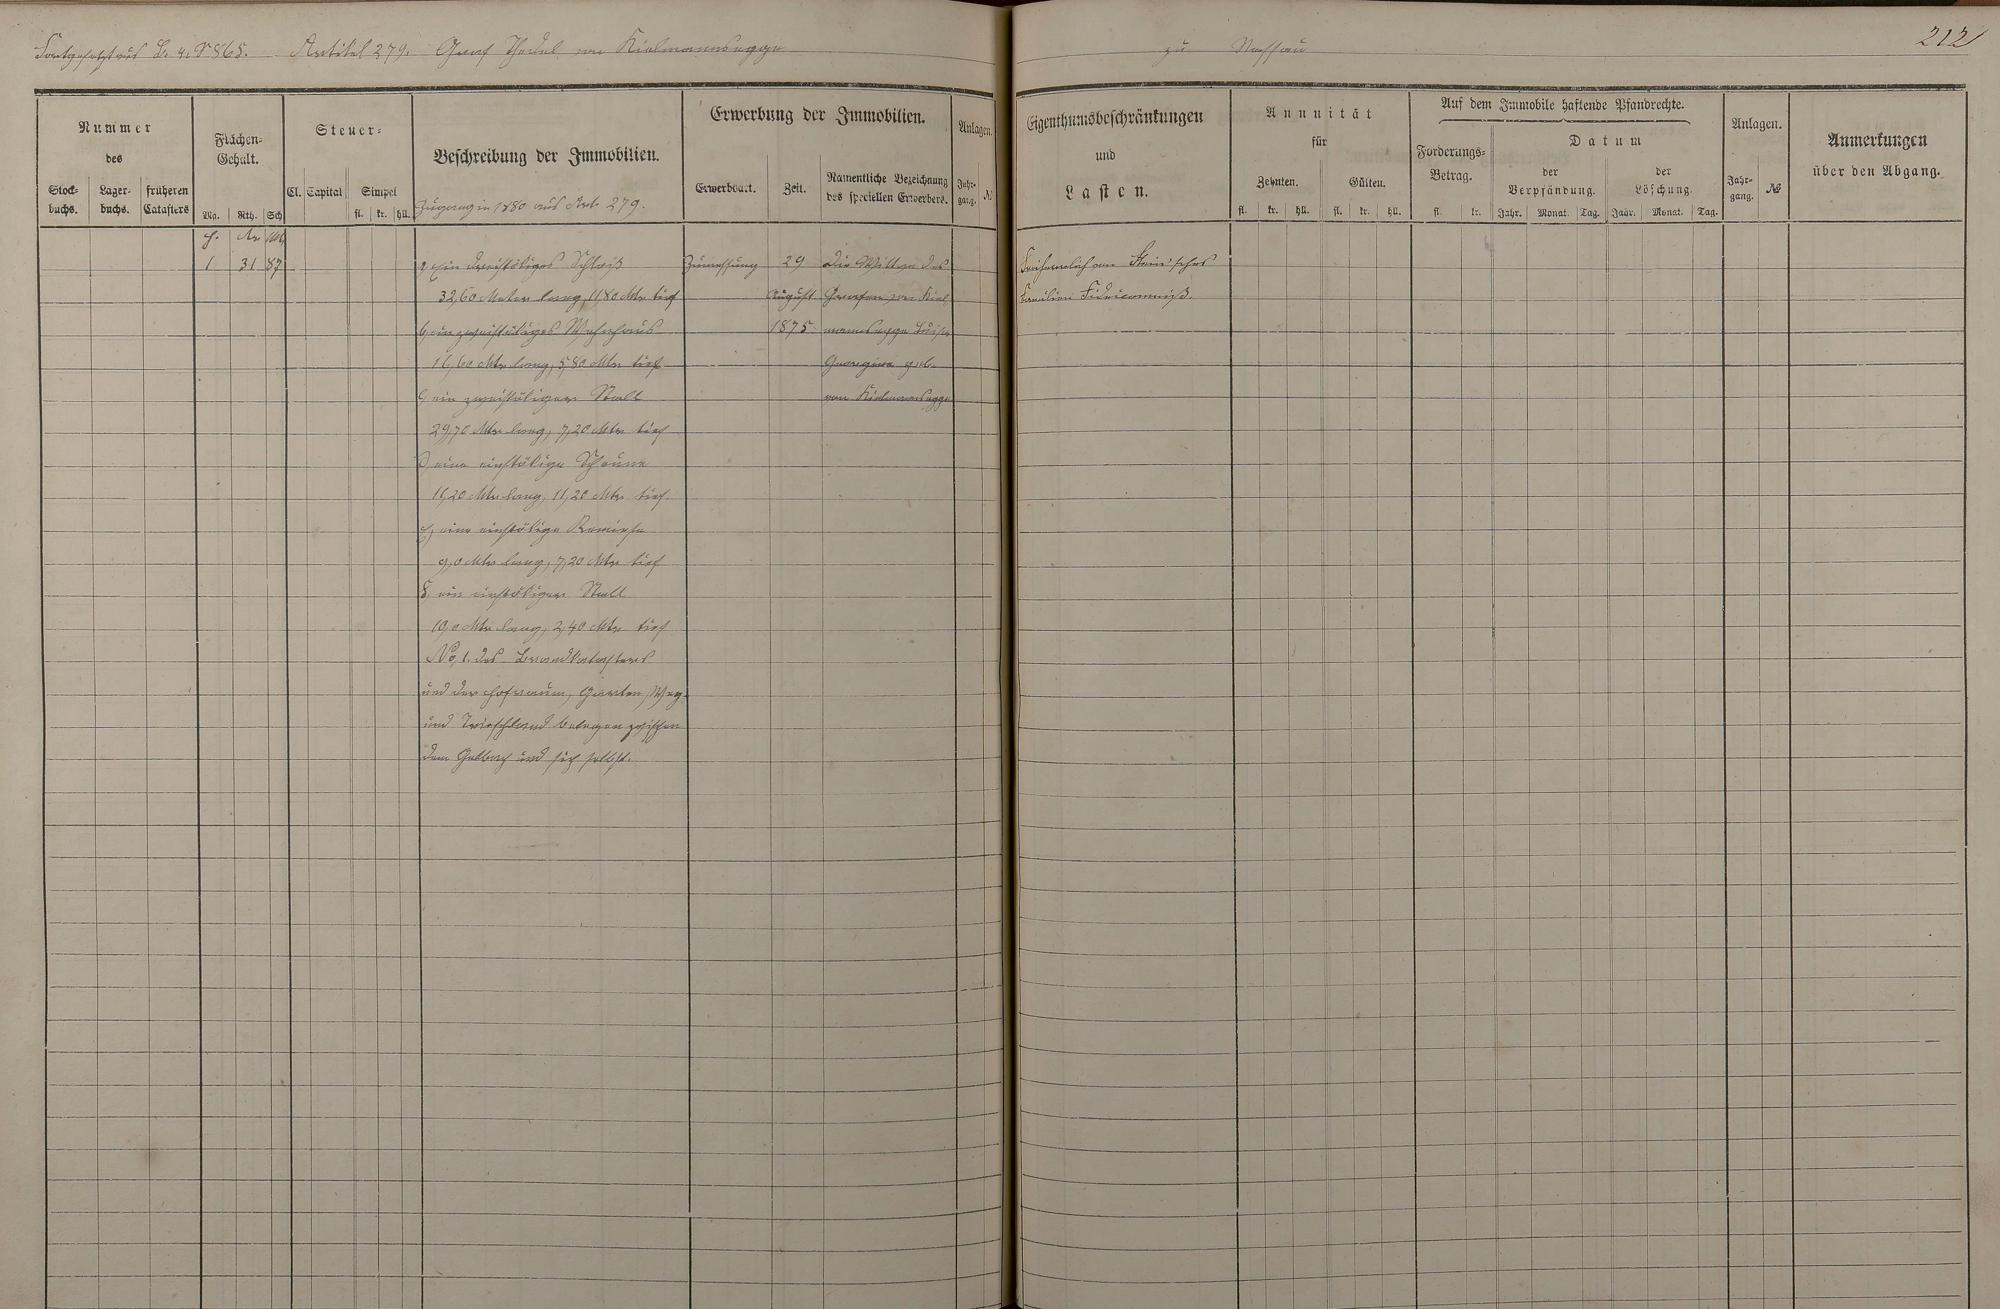 Fortgesetzt aus B. 4. S 865. Artikel 279. Graf Thedel von Kielmannsegge zu Nassau 212
Nummer
des
Stock-buchs. Lager-buchs. früheren Catasters
Flächen-Gehalt.
Mg. Rth. Sch
Steuer-
Cl. Capital Simpel
fl. kr. hll.
Beschreibung der Immobilien.
Zugang in 1880 aus Art. 279.
Erwerbung der Immobilien.
Erwerbsart. Zeit. Namentliche Bezeichnung des speciellen Erwerbers.
Anlagen.
Jahr-gang. №
Eigenthumsbeschränkungen
und
Lasten.
Annuität
für
Zehnten. Gülten.
fl. kr. hll. fl. kr. hll.
Auf dem Immobile haftende Pfandrechte.
Forderungs-Betrag.
fl. kr.
Datum
der Verpfändung. der Löschung.
Jahr. Monat. Tag. Jahr. Monat. Tag.
Anlagen.
Jahr-gang. №
Anmerkungen
über den Abgang.
H. Ar
1 31 87 a, ein dreistökiges Schloß Zumessung 29 Die Wittwe des Freiherrlich von Stein'sches
32,60 Meter lang, 11 80 Mtr tief August Grafen von Kiel Familien Fideicommiß.
b, ein zweistökiges Wohnhaus 1875 mannsegge Luise
16,60 Mtr lang, 5,80 Mtr tief Georgine geb.
c, ein zweistökiger Stall von Kielmannsegge
29,70 Mtr lang, 7,20 Mtr tief
d, eine einstökige Scheune
11,20 Mtr lang, 11,20 Mtr tief.
e, eine einstökige Remiese
9,0 Mtr lang, 7,20 Mtr tief
f, ein einstökiger Stall
10,0 Mtr lang, 2,40 Mtr tief
No, 1. des Brandkatasters
und der Hofraum, Garten, Weg
und Trieschland belegen zwischen
dem Gelbach und sich selbst.